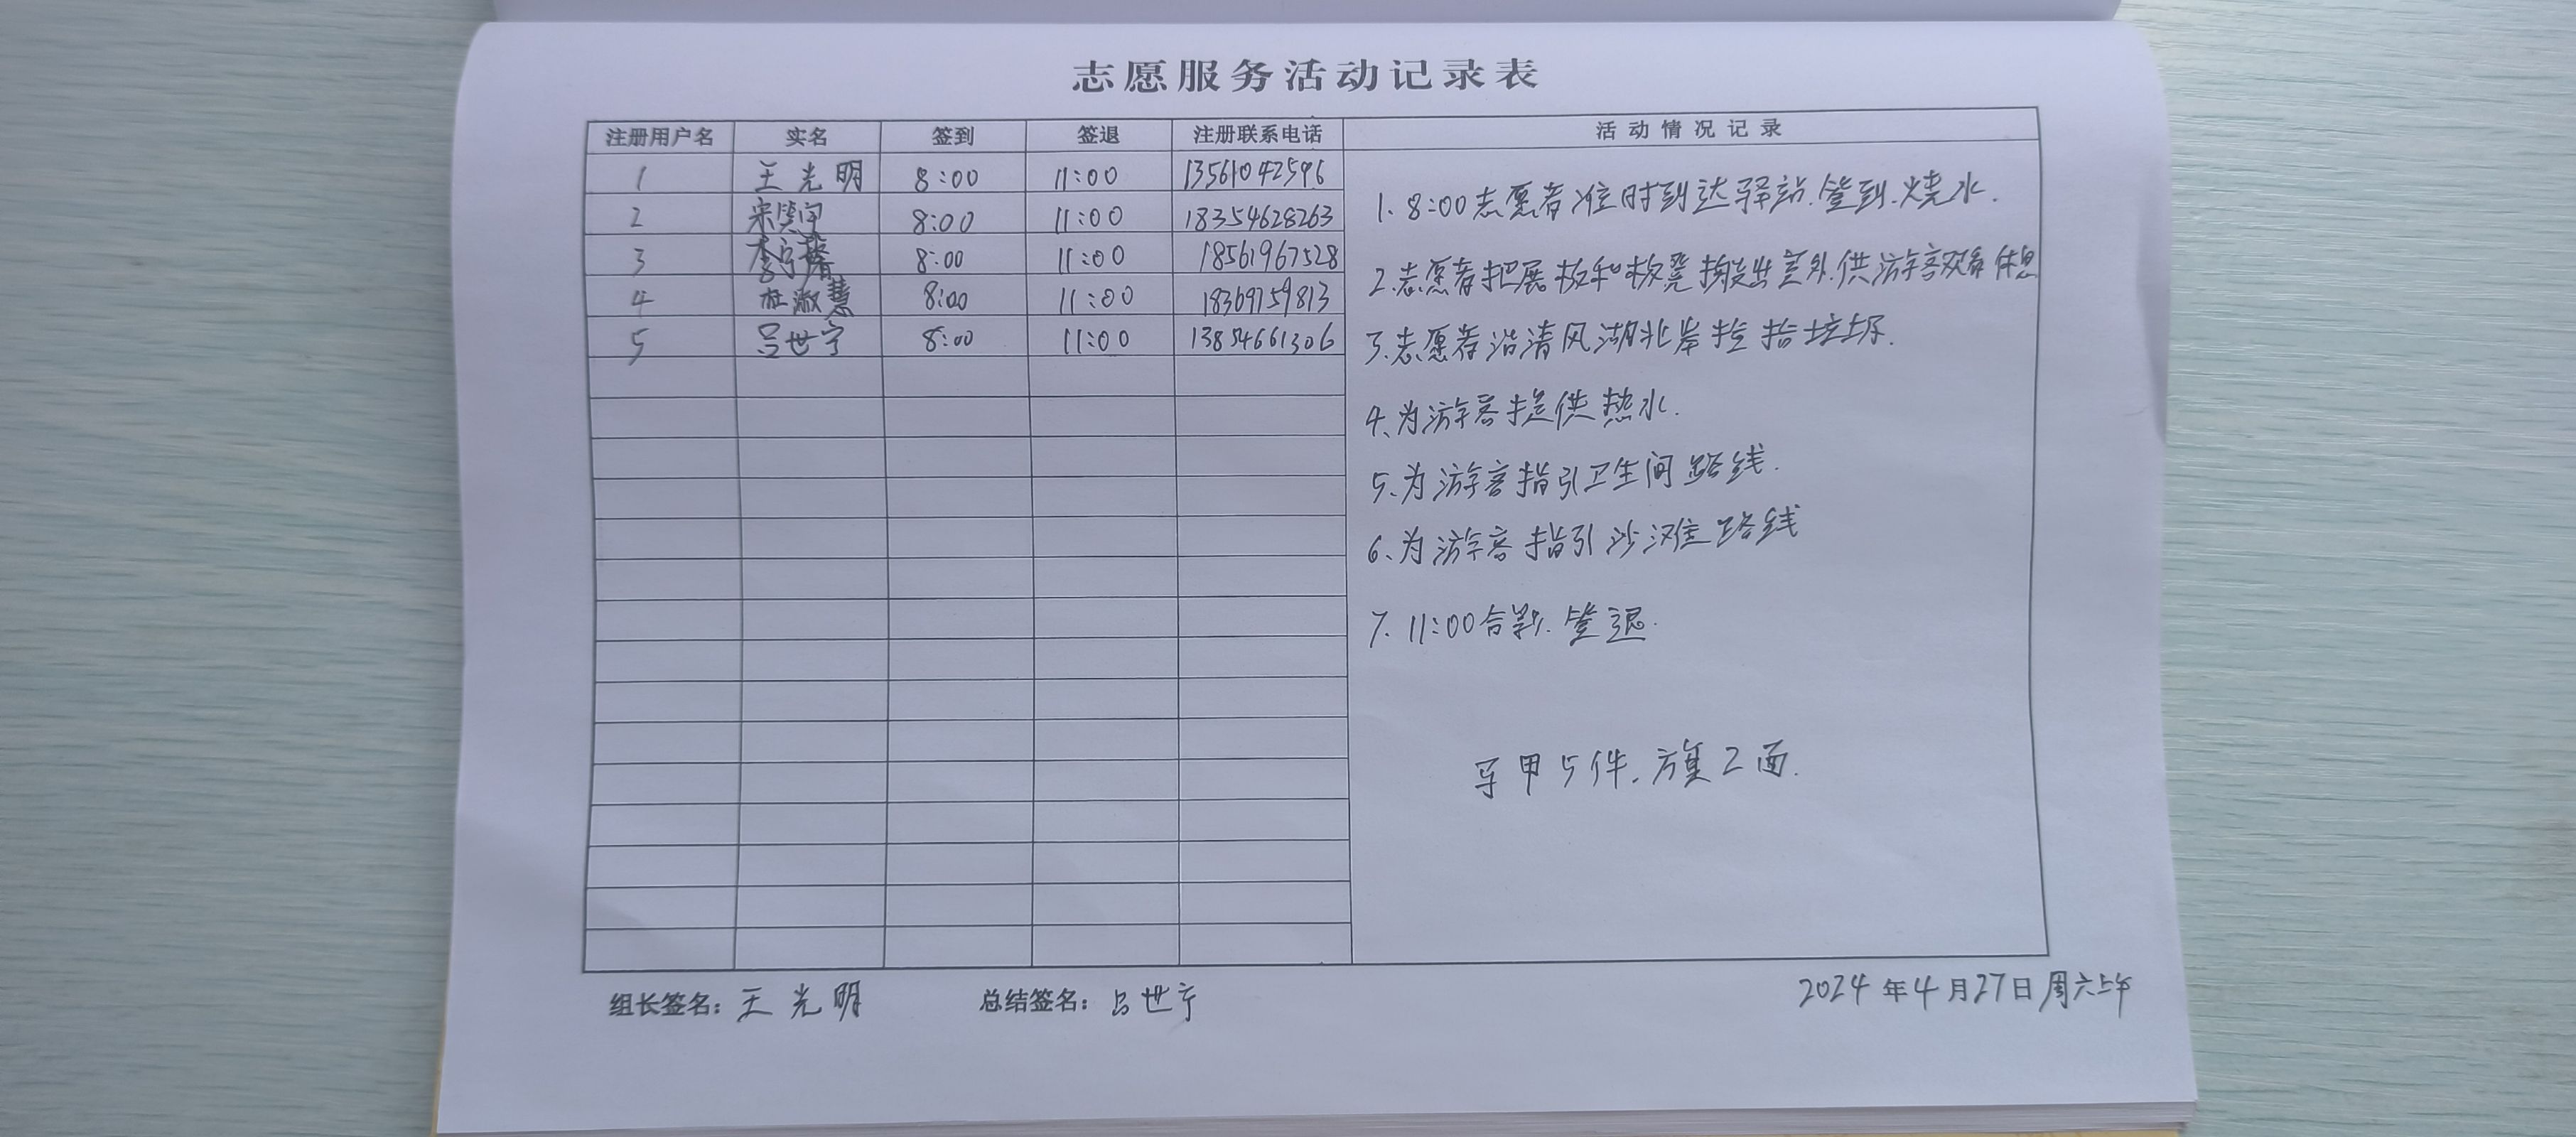 志愿服务活动记录表
注册用户名 实名 签到 签退 注册联系电话 活动情况记录
1 王光明 8:00 11:00 13561042596
2 宋 8:00 11:00 18354628263
3 李宁馨 8:00 11:00 18561967528
4 杜淑慧 8:00 11:00 18369759813
5 吕世宁 8:00 11:00 13854661306
1、8:00志愿者准时到达驿站.签到.烧水.
2.志愿者把展板和板凳搬出室外.供游客观看休息
3.志愿者沿清风湖北岸捡拾垃圾.
4、为游客提供热水.
5、为游客指引卫生间路线.
6、为游客指引沙滩路线
7、11:00合影.签退.
马甲5件.旗2面.
组长签名：王光明 总结签名：吕世宁 2024年4月27日周六上午